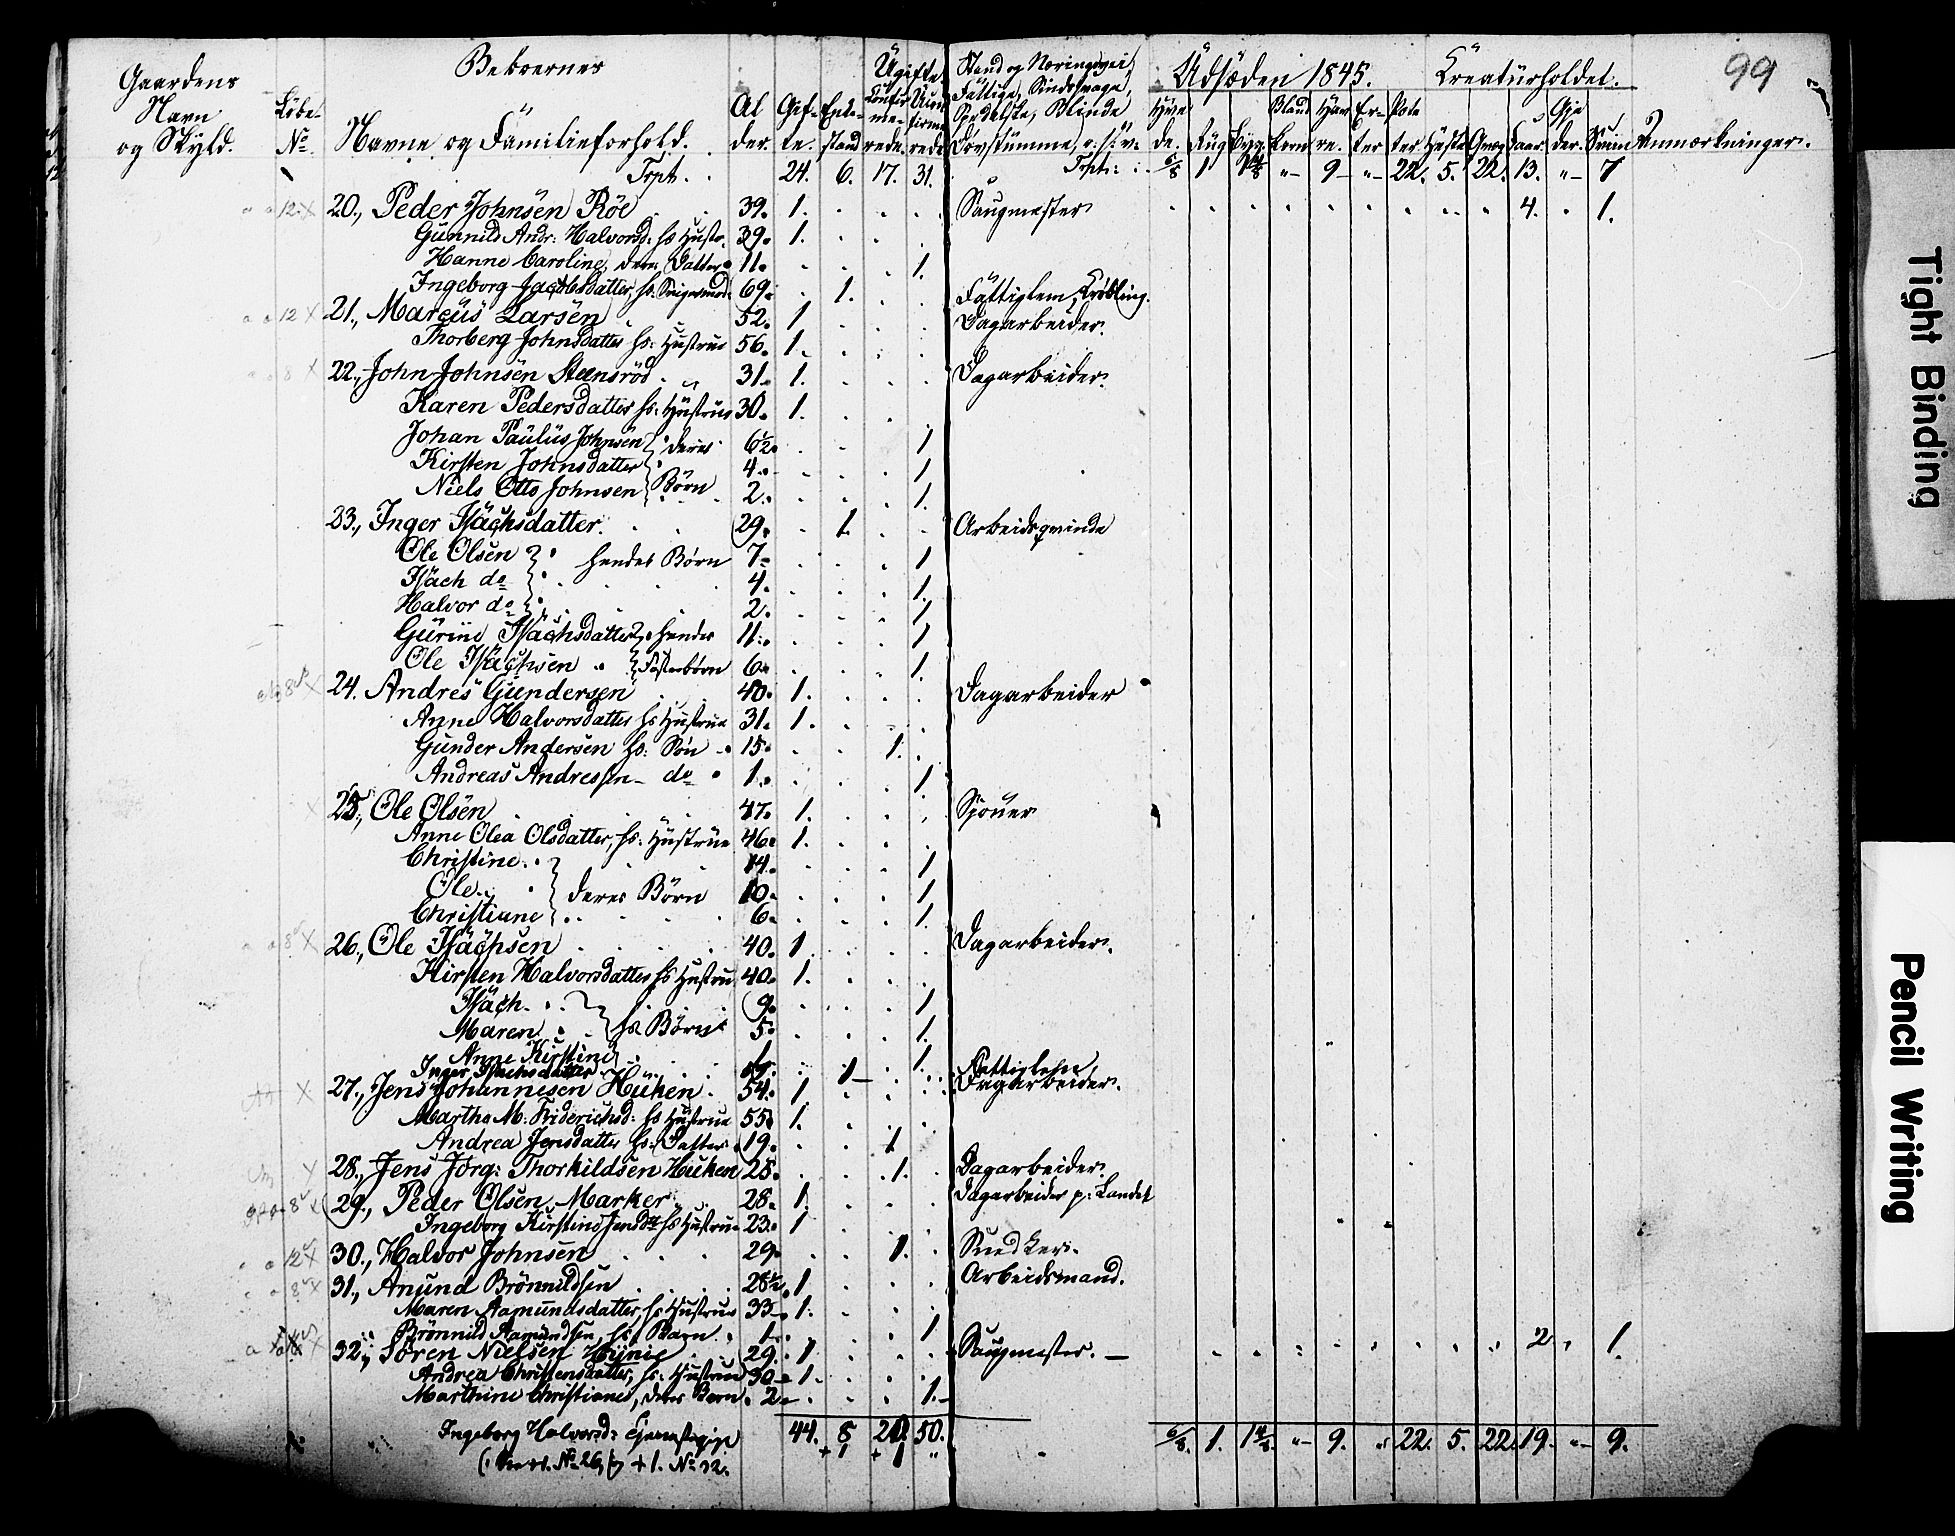 99
Gaardens Navn og Skyld.
Løbe-No.
Beboernes
Navne og Familieforhold.
Alder.
Gifte.
Enkestand
Ugifte
Confirmerede.
Uconfirmerede
Stand og Næringsvei, Fattige, Sindssvage, Spedalske, Blinde Døvstumme, o: s: v:
Udsæden 1845.
Hvede. Rug Byg. Blandkorn Havre. Erter Poteter.
Creaturholdet.
Heste Qvæg Faar. Gjeder. Sviin
Anmærkninger.
Trpt. 24. 6. 17. 31. Trpt: 6/8 1 1 4/8 " 9 " 22. 5. 22. 13. " 7
20., Peder Johnsen Röe 39. 1. Saugmester 4. 1.
Gunnild Andr: Halvorsd. hs Hustr. 39. 1.
Hanne Caroline, deres Datter 11. 1.
Ingeborg Jacobsdatter, hs: Svigermod: 69. 1. Fattiglem, Krøbling.
21., Marcus Larsen 52. 1 Dagarbeider.
Thorberg Johnsdatter hs: Hustrue 56. 1.
22., John Johnsen Steensröd 31. 1. Dagarbeider.
Karen Pedersdatter hs: Hustrue 30. 1.
Johan Paulus Johnsen deres 6½ 1
Kirsten Johnsdatter 4. 1
Niels Otto Johnsen Børn 2. 1.
23., Inger Isachsdatter. 29. 1. Arbeidsqvinde
Ole Olsen hendes Børn 7 1
Isach do 4. 1.
Halvor do 2. 1
Gurine Isachsdatter hendes 11. 1
Ole Isachsen Fosterbörn 6. 1.
24. Andres Gundersen 40. 1. Dagarbeider
Anne Halvorsdatter hs Hustrue 31. 1.
Gunder Andersen hs: Søn 15. 1.
Andreas Andressen do 1. 1
25., Ole Olsen 47. 1. Sjöuer
Anne Olea Olsdatter, hs: Hustrue 46. 1.
Christine. 14. 1
Ole. deres Børn 10. 1
Christiane 6. 1.
26., Ole Isachsen 40. 1 Dagarbeider.
Kirsten Halvorsdatter hs Hustru 40. 1.
Isach. 9. 1
Maren hs Børn 5. 1.
Anne Kirstine 1 1.
Inger Isachsdatter 1 Fattiglem,
27., Jens Johannesen Huken. 54. 1 Dagarbeider.
Marthe M. Friderichsd: hs Hustrue 55 1.
Andrea Jensdatter hs: Datter. 19. 1
28., Jens Jörg: Thorkildsen Huken 25. 1. Dagarbeider.
29., Peder Olsen Marker 28. 1. Dagarbeider p: Landet
Ingeborg Kirstine Jensdtr hs Hustrue 23. 1
30., Halvor Johnsen 29. 1. Snedker.
31., Anund Brönnildsen 28½ 1 Arbeidsmand.
Maren Aamundsdatter, hs Hustrue 33 1.
Brönnild Aamundsen, hs: Barn. 1. 1
32., Sören Nielsen 29. 1 Saugmester. 2 1.
Andrea Christensdatter, hs: Hustrue 30 1.
Marthine Christiane, deres Barn. 2 1.
44. 8 20. 50. 6/8. 1. 1 4/8. " 9. " 22. 5. 22. 19. " 9.
Ingeborg Halvorsd: + 1 + 1 "
No 26, + 1. No 32.
Tight Binding
Pencil Writing